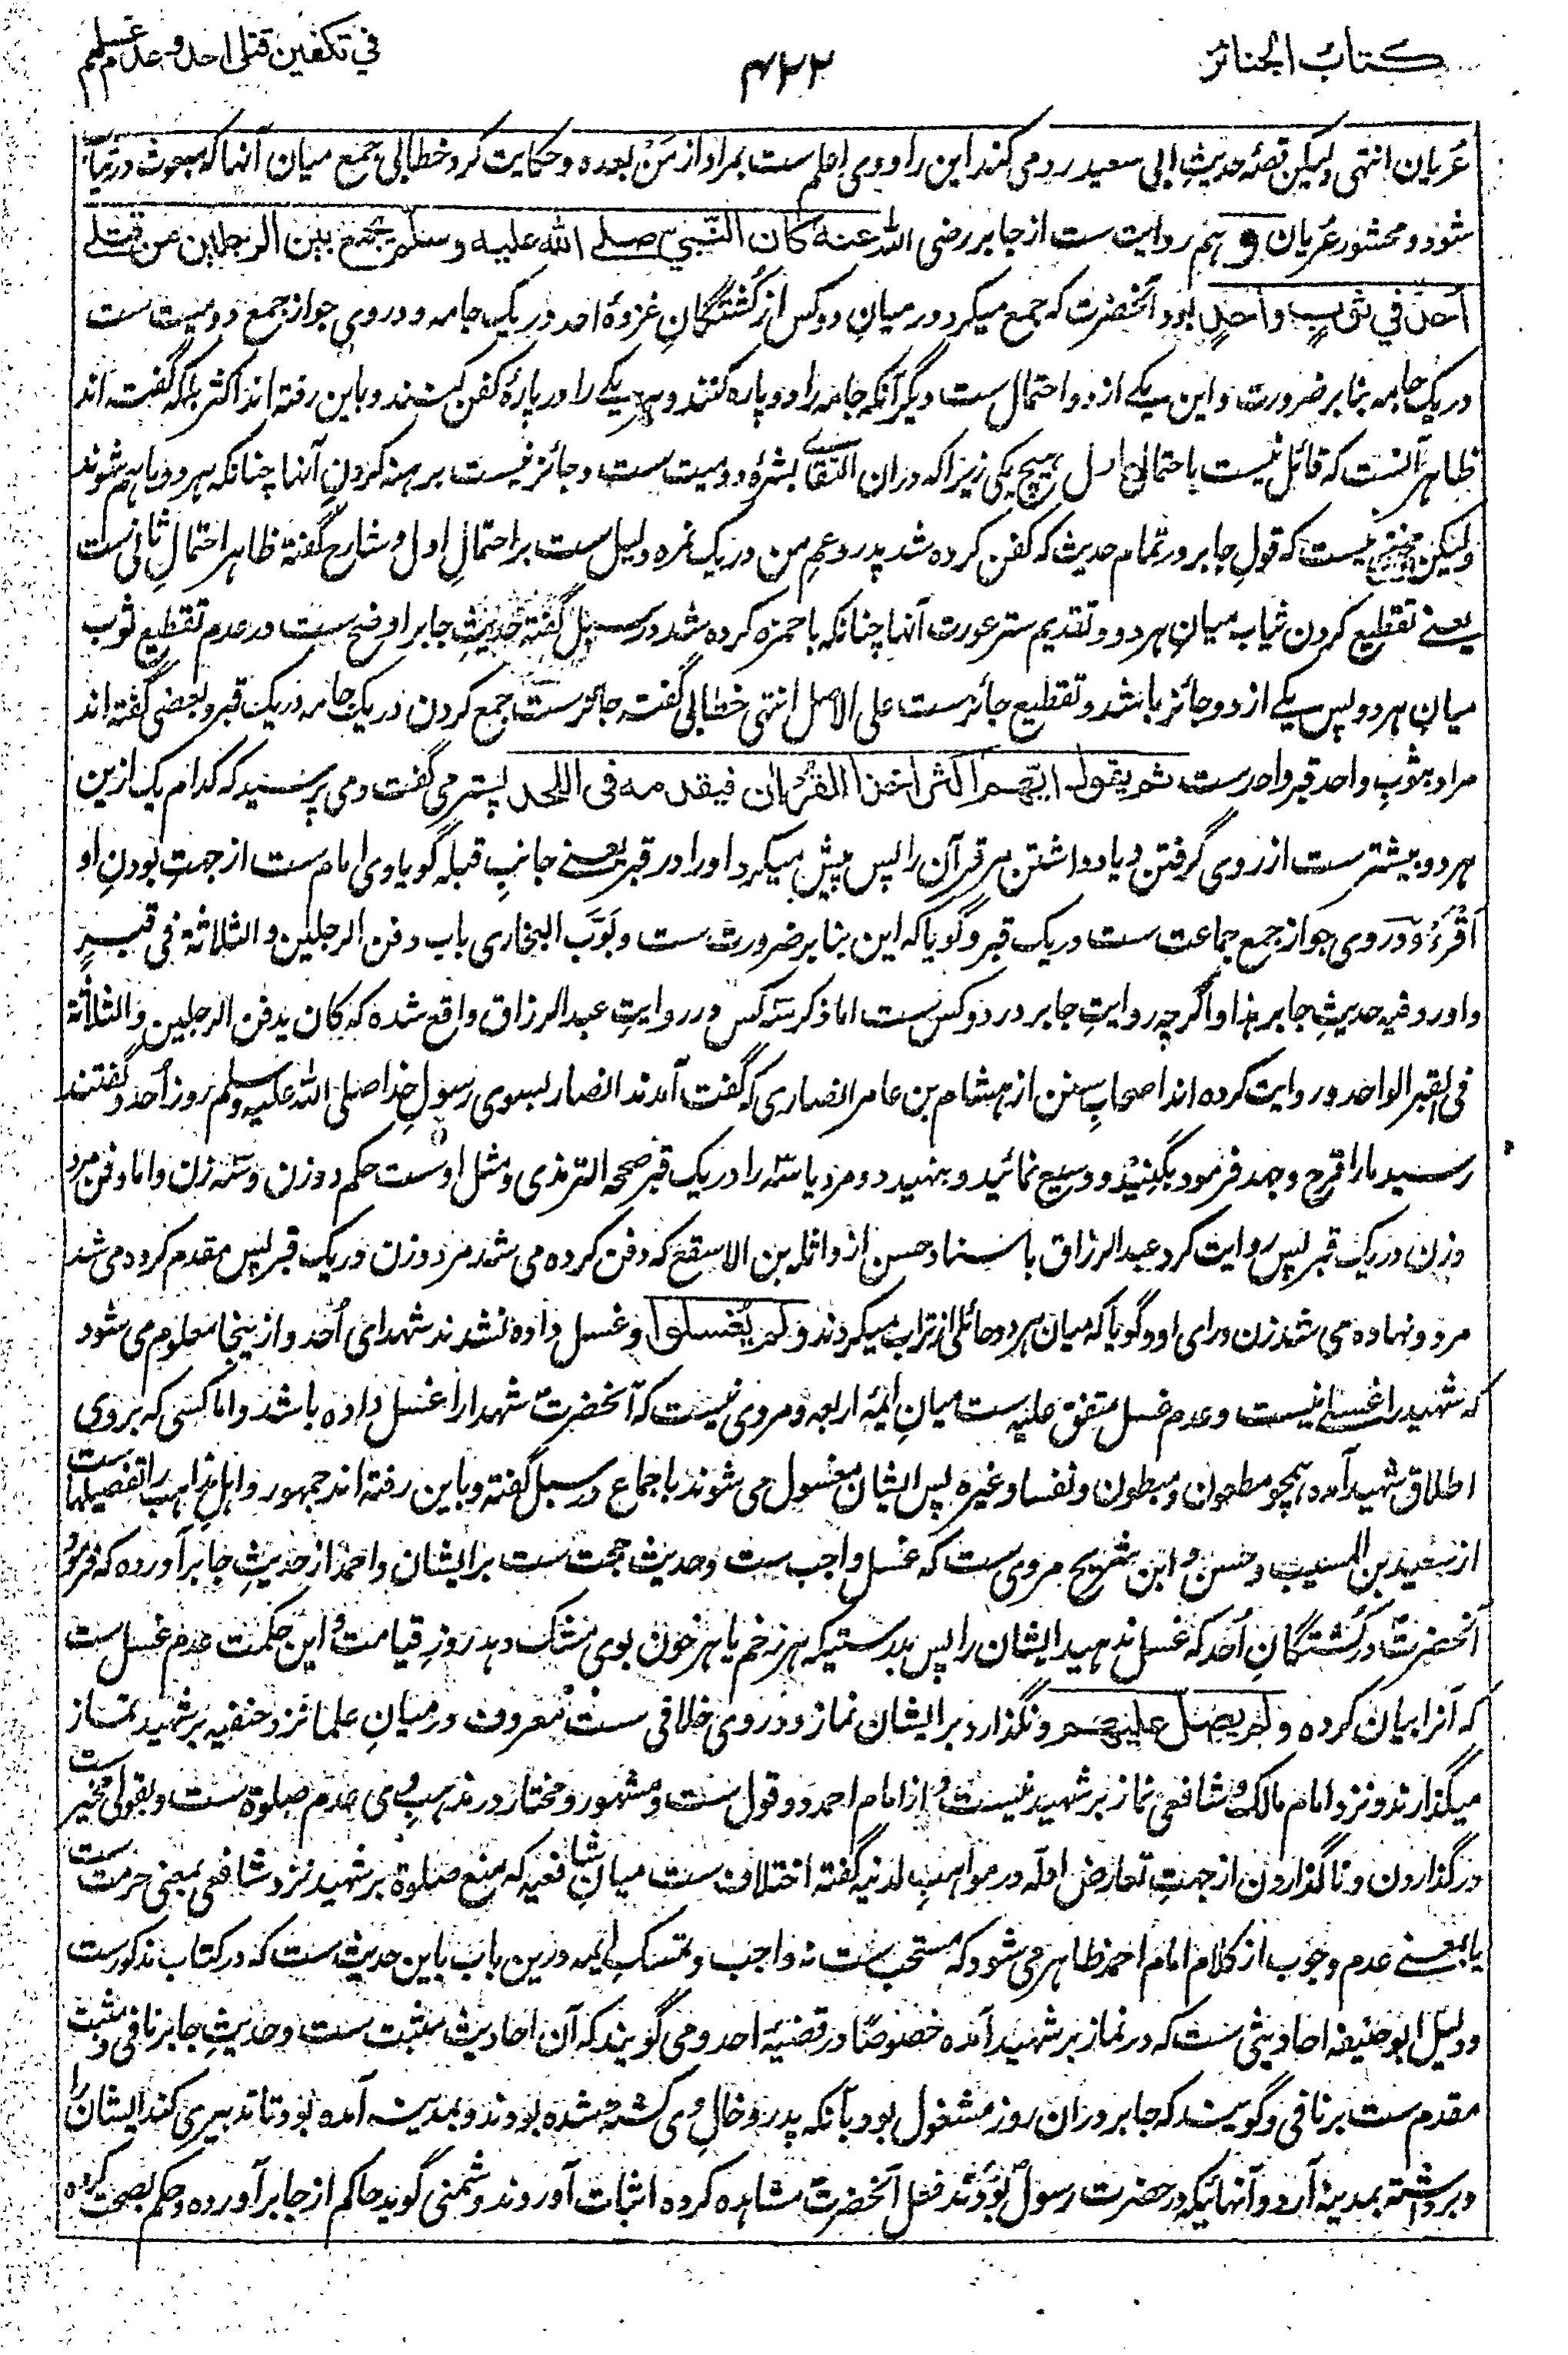 كتاب الجنائز
۴۲۲
في تكفين قتلى احد وعدم غسلهم
عُریان انتهی ولیکن قصّه حدیثِ ابی سعید رد می کند این را ووی اعلم ست بمراد از مَنْ بعده وحکایت کرد خطابی جمع میان آنها که مبعوث در ثیاب
شود ومحشور عُریان و هم روایت ست از جابر رضی الله عنه كان النّبي صلے الله عليه وسلم يجمع بين الرجلين من قتلے
اُحدٍ في ثوبٍ واحدٍ بود آنحضرت که جمع میکرد در میانِ دو کس از کُشتگانِ غزوهٔ احد در یک جامه ودر وی جوازِ جمع دو میت ست
در یک جامه بنا بر ضرورت واین یکے از دو احتمال ست دیگر آنکه جامه را دو پاره کنند وهر یکے را در پارهٔ کفن کنند وباین رفته اند اکثر بلکه گفته اند
ظاهر آنست که قائل نیست باحتمالِ اول هیچ یکی زیرا که دران التقاے بشرهٔ دو میت ست وجائز نیست برهنه کردنِ آنها چنانکه هر دو باهم شوند
ولیکن مخفی نیست که قولِ جابر در تمام حدیث که کفن کرده شد پدر وعمِ من در یک نمره دلیل ست بر احتمالِ اول وشارح گفته ظاهر احتمالِ ثانی ست
یعنے تقطیع کردن ثیاب میانِ هر دو وتقدیم ستر عورت آنها چنانکه با حمزه کرده شد در سبل گفته حدیثِ جابر اوضح ست در عدم تقطیعِ ثوب
میانِ هر دو پس یکے از دو جائز باشد وتقطیع جائز ست علی الاصل انتهی خطابی گفت جائز ست جمع کردن در یک جامه در یک قبر وبعضی گفته اند
مراد بثوبِ واحد قبر واحد ست ثم يقول ايّهم اكثر اخذا القرآن فيقدمه فى اللحد پستر می گفت ومی پرسید که کدام یک ازین
هر دو بیشتر ست از روی گرفتن ویاد داشتن مر قرآن را پس پیش میکرد او را در قبر یعنے جانبِ قبله گویا وی امام ست از جهتِ بودنِ او
اَقْرَءُ ودر وی جواز جمع جماعت ست در یک قبر وگویا که این بنا بر ضرورت ست وبَوَّبَ البخاری باب دفن الرجلین والثلاثة فی قبرٍ
واورد فیه حدیثِ جابر هذا واگرچه روایتِ جابر در دو کس ست اما ذکر سه کس در روایتِ عبد الرزاق واقع شده که کان یدفن الرجلین والثلاثة
فی القبر الواحد وروایت کرده اند اصحابِ سنن از هشام بن عامر انصاری که گفت آمدند انصار بسوی رسولِ خدا صلی الله علیه وسلم روز اُحد وگفتند
رسید مارا قرح وجهد فرمود بکنید ووسیع نمائید وبنهید دو مرد یا سه را در یک قبر صححه الترمذی ومثل اوست حکمِ دو زن وسه زن واما دفن مرد
وزن در یک قبر پس روایت کرد عبد الرزاق باسناد حسن از واثله بن الاسقع که دفن کرده می شد مرد وزن در یک قبر پس مقدم کرده می شد
مرد ونهاده می شد زن ورای او وگویا که میان هر دو حائلی از تراب میکردند ولم يُغسلوا وغسل داده نشدند شهدای اُحد وازینجا معلوم می شود
که شهید را غسلے نیست وعدم غسل متفق علیه ست میانِ ائمهٔ اربعه ومروی نیست که آنحضرتؐ شهدا را غسل داده باشد واما کسی که بروی
اطلاقِ شهید آمده همچو مطعون ومبطون ونفسا وغیره پس ایشان مغسول می شوند باجماع در سبل گفته وباین رفته اند جمهور واهلِ مذاهب را تفصیلها ست
از سعید بن المسیب وحسن و ابن شریح مروی ست که غسل واجب ست وحدیث حجت ست بر ایشان واحمد از حدیثِ جابر آورده که فرمود
آنحضرتؐ در کُشتگانِ اُحد که غسل ندهید ایشان را پس بدرستیکه هر زخم یا هر خون بوی مشک دهد روزِ قیامت و این حکمت عدم غسل ست
که آنرا بیان کرده ولم يصل عليهم ونگذارد بر ایشان نماز ودر وی خلافی ست معروف در میانِ علما نزد حنفیه بر شهید نماز
میگذارند ونزد امام مالک و شافعی نماز بر شهید نیست و از امام احمد دو قول ست ومشهور ومختار در مذهبِ وی عدم صلوة ست وبقولی مخیر ست
در گذاردن وناگذاردن از جهتِ تعارض ادلّه در مواهب لدنیه گفته اختلاف ست میانِ شافعیه که منع صلوة بر شهید نزد شافعی بمعنی حرمت ست
یا بمعنے عدم وجوب از کلام امام احمد ظاهر می شود که مستحب ست نه واجب وتمسک ائمه درین باب باین حدیث ست که در کتاب مذکور ست
ودلیل ابو حنیفه احادیثی ست که در نماز بر شهید آمده خصوصًا در قضیّهٔ احد ومی گویند که آن احادیث مثبت ست وحدیثِ جابر نافی ومثبت
مقدم ست بر نافی وگویند که جابر دران روز مشغول بود بآنکه پدر وخالِ وی کشته شده بودند وبمدینه آمده بود تا تدبیری کند ایشان را
وبرداشته بمدینه آرد وآنهائیکه در حضرت رسولؐ بودند فعلِ آنحضرتؐ مشاهده کرده اثبات آوردند وشمنی گوید حاکم از جابر آورده وحکم بصحت کرده